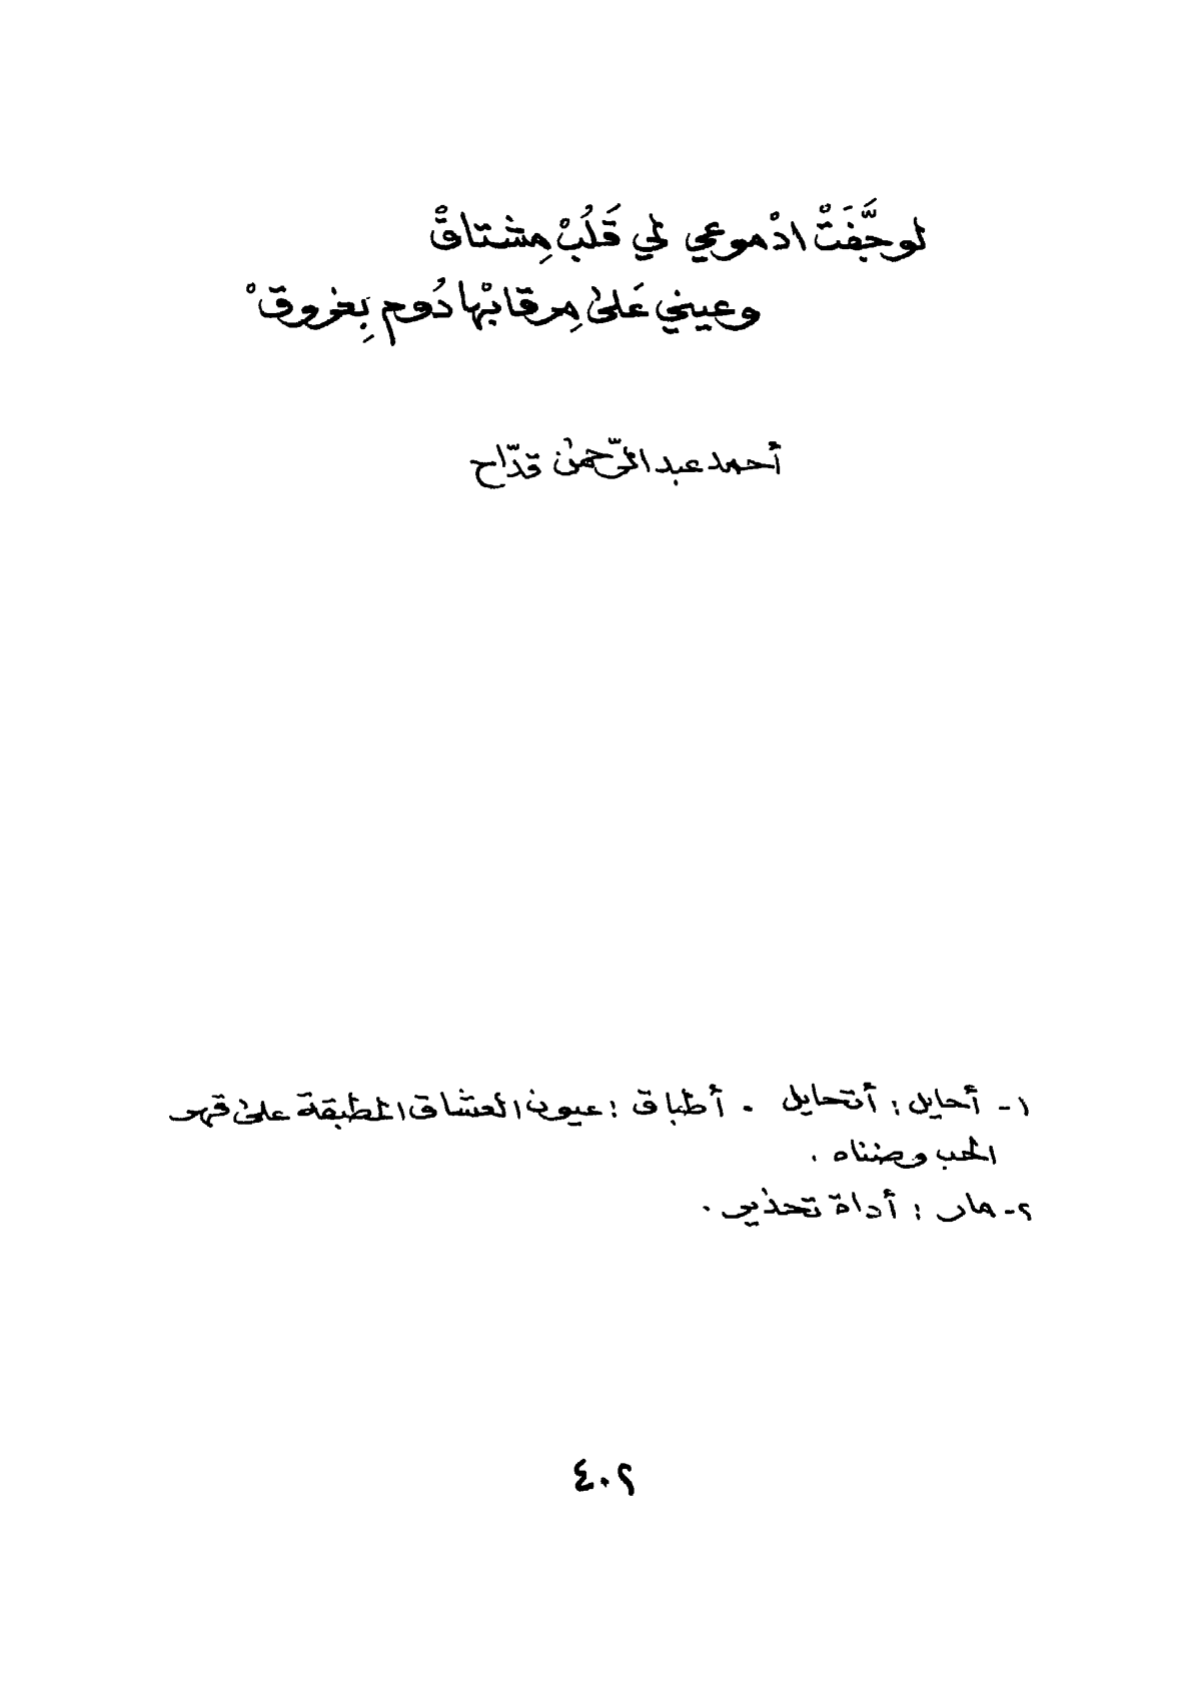 لو جَّفَتْ ادْموعي لي قَلُبْ مِشتاقْ
وعيني عَلىٰ مِرقابْها دُوم بِغروقْ
أحمد عبدالرّحمن قدّاح
١- أحايل: أتحايل . أطباق: عيون العشاق المطبقة على قهر
الحب وضناه .
٢- مار: أداة تحذير .
٤٠٢